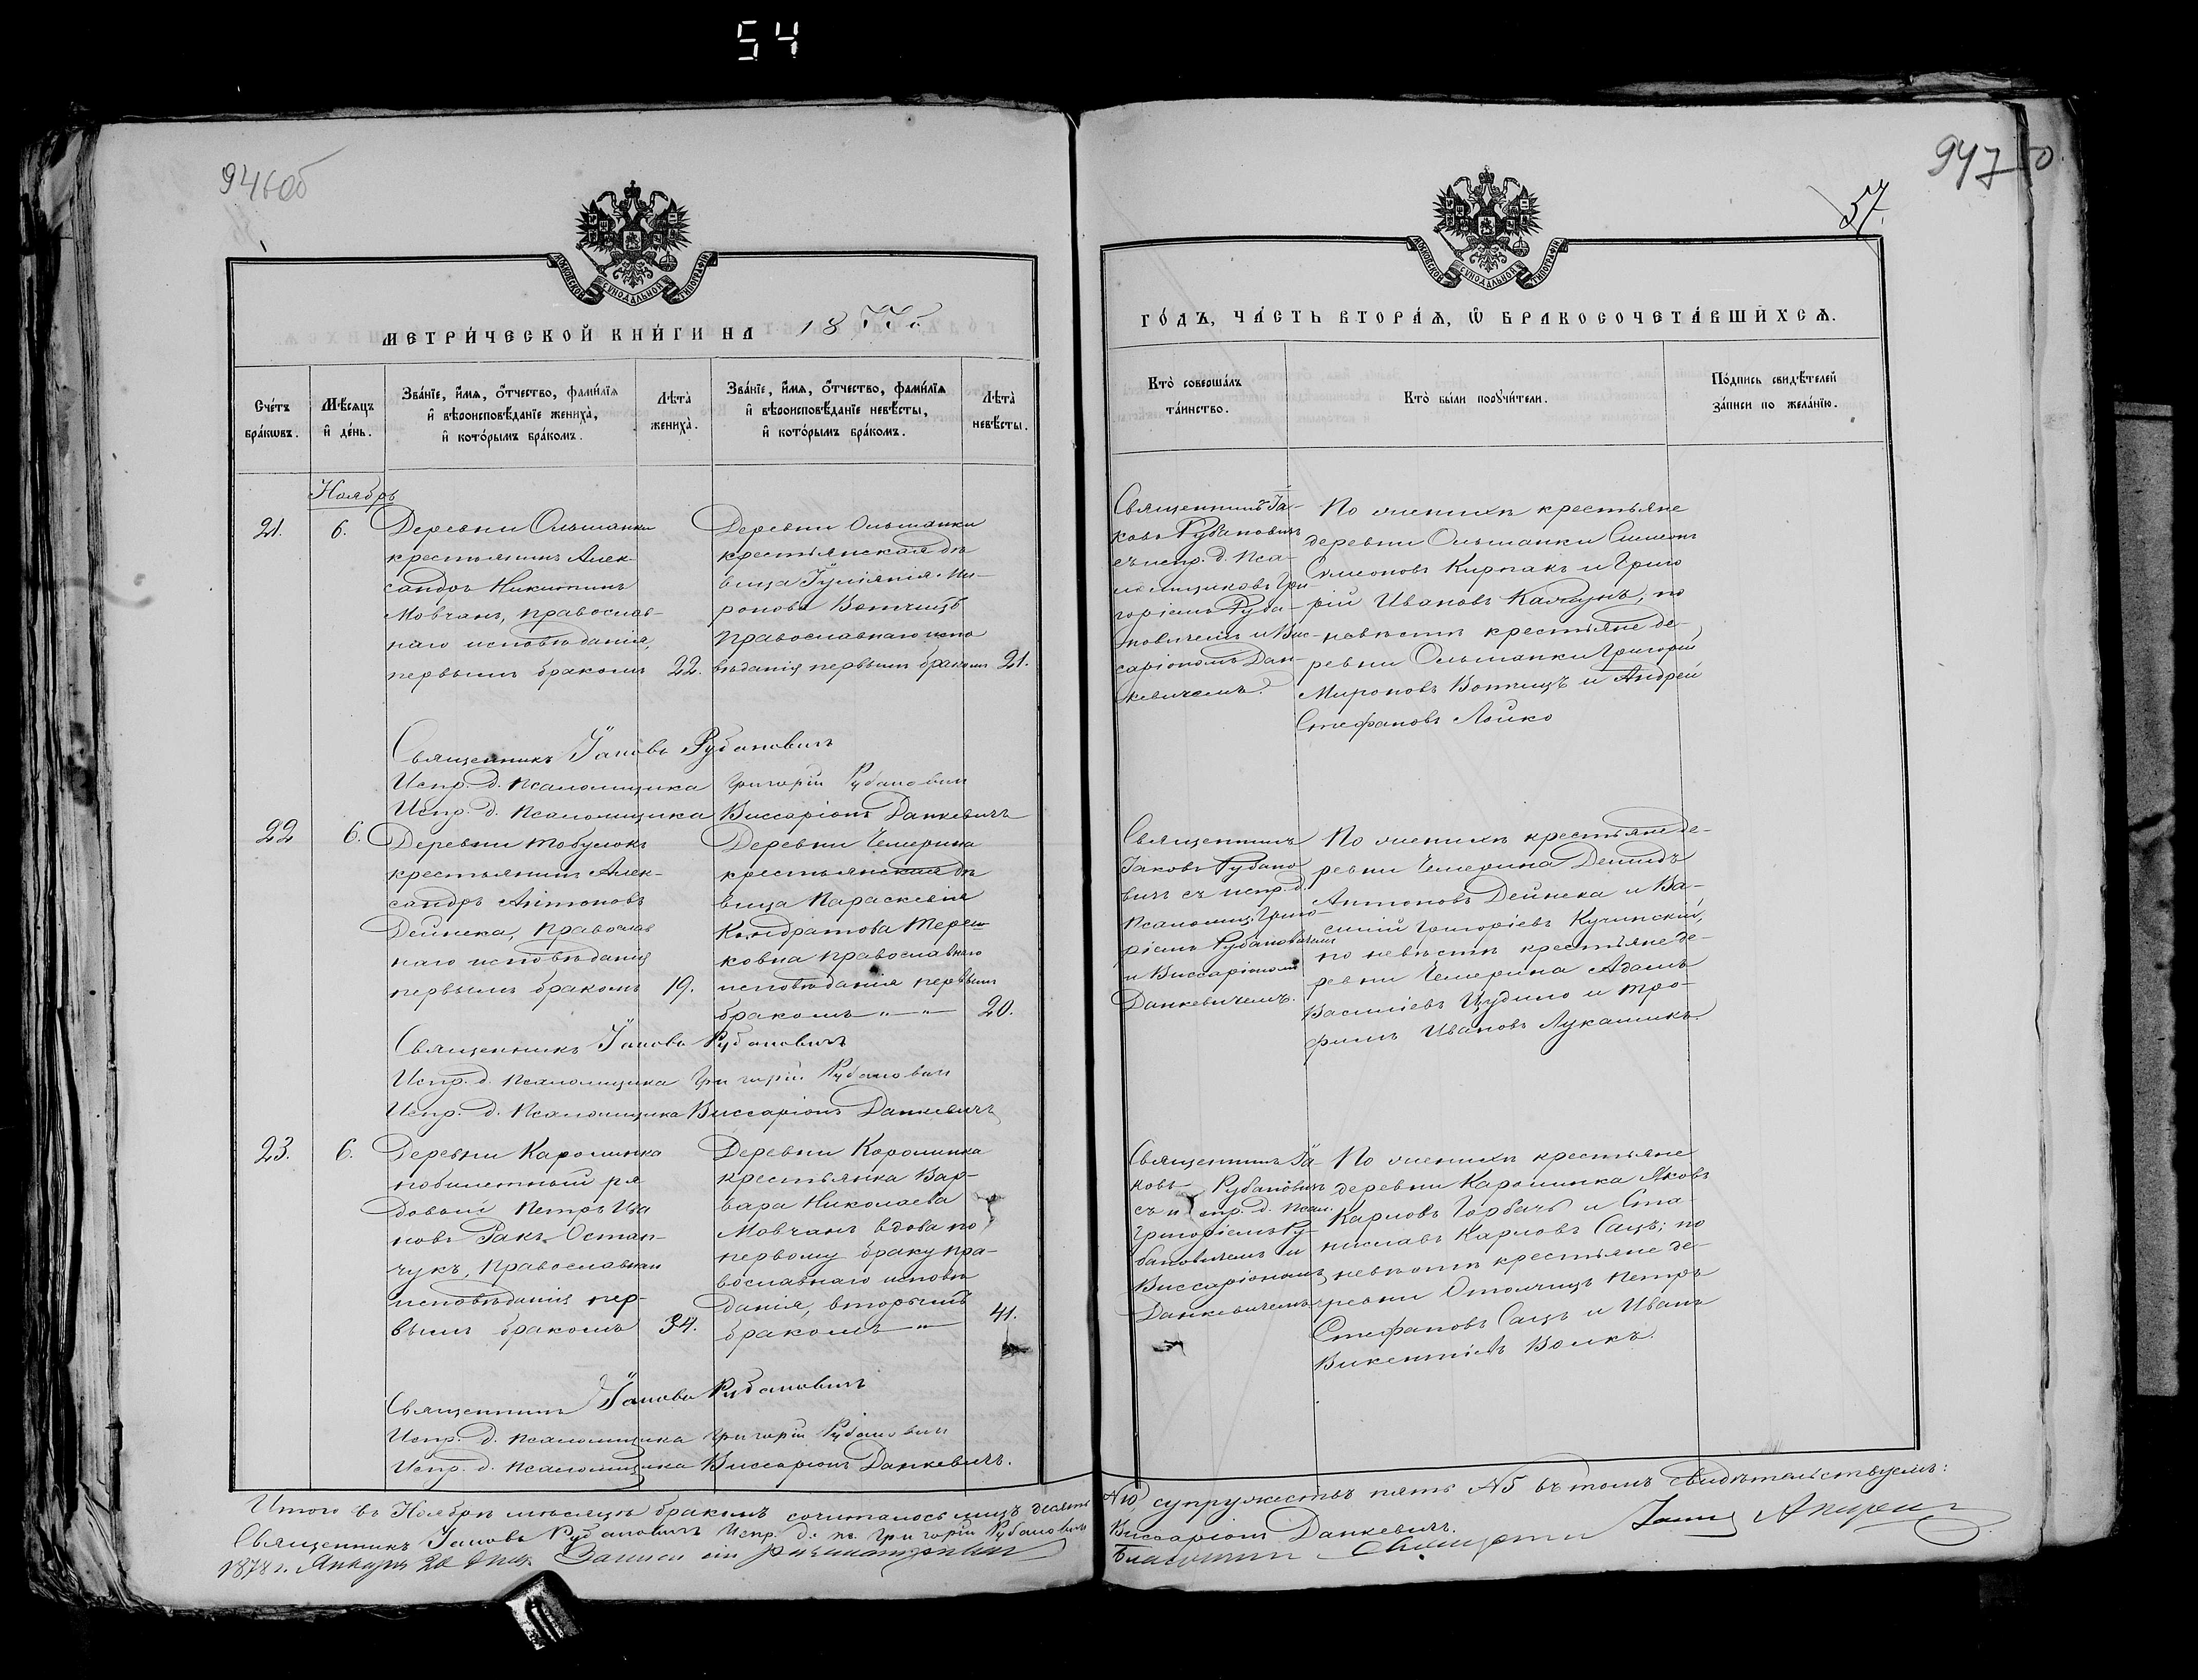 54
946об
947
57.
МОСКОВСКОЙ СѴНОДАЛЬНОЙ ТИПОГРАФІИ
МОСКОВСКОЙ СѴНОДАЛЬНОЙ ТИПОГРАФІИ
МЕТРИ́ЧЕСКОЙ КНИ́ГИ НА 1877й
ГО́ДЪ, ЧА́СТЬ ВТОРА́Ѧ, Ѽ БРАКОСОЧЕТА́ВШИХСѦ.
Сче́тъ бра́кωвъ.
Мѣ́сѧцъ и҆ де́нь.
Зва́нїе, и҆́мѧ, ѻ҆́тчество, фами́лїѧ и҆ вѣроисповѣ́данїе жениха̀, и҆ кото́рымъ бра́комъ.
Лѣ̑та̀ жениха̀.
Зва́нїе, и҆́мѧ, ѻ҆́тчество, фами́лїѧ и҆ вѣроисповѣ́данїе невѣ́сты, и҆ кото́рымъ бра́комъ.
Лѣ̑та̀ невѣ́сты.
Кто̀ соверша́лъ та́инство.
Кто̀ бы́ли порꙋчи́тели.
По́дпись свидѣ́телей за́писи по жела́нїю.
Ноябрь
21.
6.
Деревни Ольшанки
крестьянинъ Алек-
сандръ Никитинъ
Мовчанъ, православ-
наго исповѣданія,
первымъ бракомъ
22.
Деревни Ольшанки
крестьянская дѣ
вица Іуліянія Ми-
ронова Вотчицъ
Православнаго испо
вѣданія первымъ бракомъ
21.
Священникъ Іа-
ковъ Рубановичъ
съ испр. д. Пса-
ломщиковъ Гри-
горіемъ Руба-
новичемъ и Вис-
саріономъ Дан-
кевичемъ.
По женихѣ крестьяне
деревни Ольшанки Симеонъ
Симеоновъ Кирпакъ и Григо
рій Ивановъ Калаунъ, по
невѣстѣ крестьяне де-
ревни Ольшанки Григорій
Мироновъ Вотчицъ и Андрей
Стефановъ Лойко
Священникъ Іаковъ Рубановичъ
Испр. д. псаломщика Григорій Рубанович
Испр. д. псаломщика Виссаріонъ Данкевичъ
22
6.
Деревни Тобулокъ
крестьянинъ Алек-
сандръ Антоновъ
Дейнека, православ
наго исповѣданія
первымъ бракомъ
19.
Деревни Чемерина
крестьянская дѣ
вица Параскевія
Кондратова Тереш
ковна православнаго
исповѣданія первымъ
бракомъ
20.
Священникъ
Іаковъ Рубано
вичъ съ испр. д.
Псаломщ. Григо-
ріемъ Рубановичемъ
и Виссаріономъ
Данкевичемъ.
По женихѣ крестьяне де-
ревни Чемерина Демидъ
Антоновъ Дейнека и Ва-
силій Григоріевъ Кучинскій,
по невѣстѣ крестьяне де-
ревни Чемерина Адамъ
Василіевъ Цудило и Тро-
фимъ Ивановъ Лукашикъ.
Священникъ Іаковъ Рубановичъ
Испр. д. псаломщика Григорій Рубанович
Испр. д. псаломщика Виссаріонъ Данкевичъ
23.
6.
Деревни Каролинка
побилетный ря
довой Петръ Ива
новъ Ракъ Остап-
чукъ, православнаго
исповѣданія пер-
вымъ бракомъ
34.
Деревни Каролинка
крестьянка Вар-
вара Николаева
Мовчанъ вдова по
первому браку пра-
вославнаго исповѣ
данія, вторымъ
бракомъ
41.
Священникъ Іа-
ковъ Рубановичъ
съ испр. д. псал.
Григоріемъ Ру-
бановичемъ и
Виссаріономъ
Данкевичемъ
По женихѣ крестьяне
деревни Каролинка Яковъ
Карловъ Горбачъ и Ста-
ниславъ Карловъ Сацъ; по
невѣстѣ крестьяне де-
ревни Отолчицъ Петръ
Стефановъ Сацъ и Иванъ
Викентіевъ Волкъ.
Священникъ Іаковъ Рубановичъ
Испр. д. псаломщика Григорій Рубанович
Испр. д. псаломщика Виссаріонъ Данкевичъ.
Итого въ Ноябрѣ мѣсяцѣ бракомъ сочиталось лицъ десять №10 супружествъ пять №5 въ томъ свидѣтельствуемъ:
Священникъ Іаковъ Рубановичъ Испр. д. пс. Григорій Рубановичъ Виссаріонъ Данкевичъ.
1878 г. Января 20 дня Записи сіи